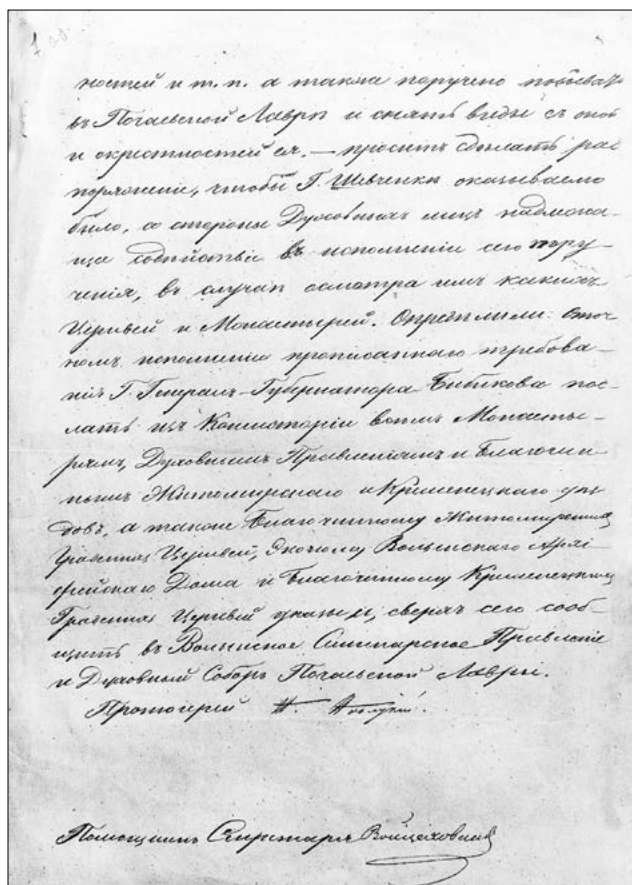 ностей и т. п. а также поручено побывать
въ Почаевской Лаврѣ и снять виды съ оной
и окрестностей ея. — проситъ сдѣлать рас
поряженіе, чтобы Г. Шевченки оказываемо
было, со стороны Духовныхъ лицъ надлежа-
ще содѣйствіе въ исполненіи сего пору-
ченія, въ случаѣ осмотра имъ какихъ
Церквей и Монастырей. Опредѣлили: о точ-
номъ исполненіи прописаннаго требова-
нія Г. Генералъ-Губернатора Бибикова пос-
лать изъ Консисторіи всѣмъ Монасты-
рямъ, Духовнымъ Правленіямъ и Благочин-
нымъ Житомирскаго и Кременецкаго уѣз-
довъ, а также Благочинному Житомирскихъ
Градскихъ Церквей, Эконому Волынскаго Архі-
ерейскаго Дома и Благочинному Кременецкихъ
Градскихъ Церквей указы, сверхъ сего сооб-
щить въ Волынское Семинарское Правленіе
и Духовный Соборъ Почаевской Лавры.
Протоіерей
Помощникъ Секретаря Войцеховскій